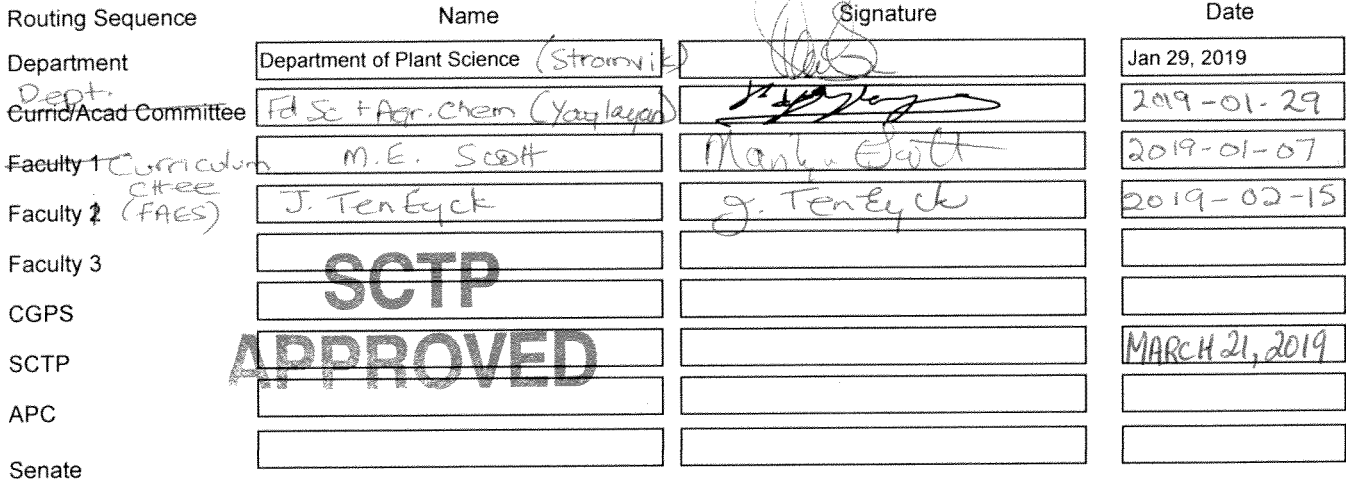 Routing Sequence Name Signature Date
Department Department of Plant Science (Stromvik) Jan 29, 2019
Dept.
Curric/Acad Committee Fd Sc + Agr. Chem (Yaylayan) 2019-01-29
Faculty 1 Curriculum M.E. Scott Marilyn Scott 2019-01-07
cttee
Faculty 2 (FAES) J. TenEyck J. TenEyck 2019-02-15
Faculty 3
SCTP
CGPS
SCTP MARCH 21, 2019
APPROVED
APC
Senate